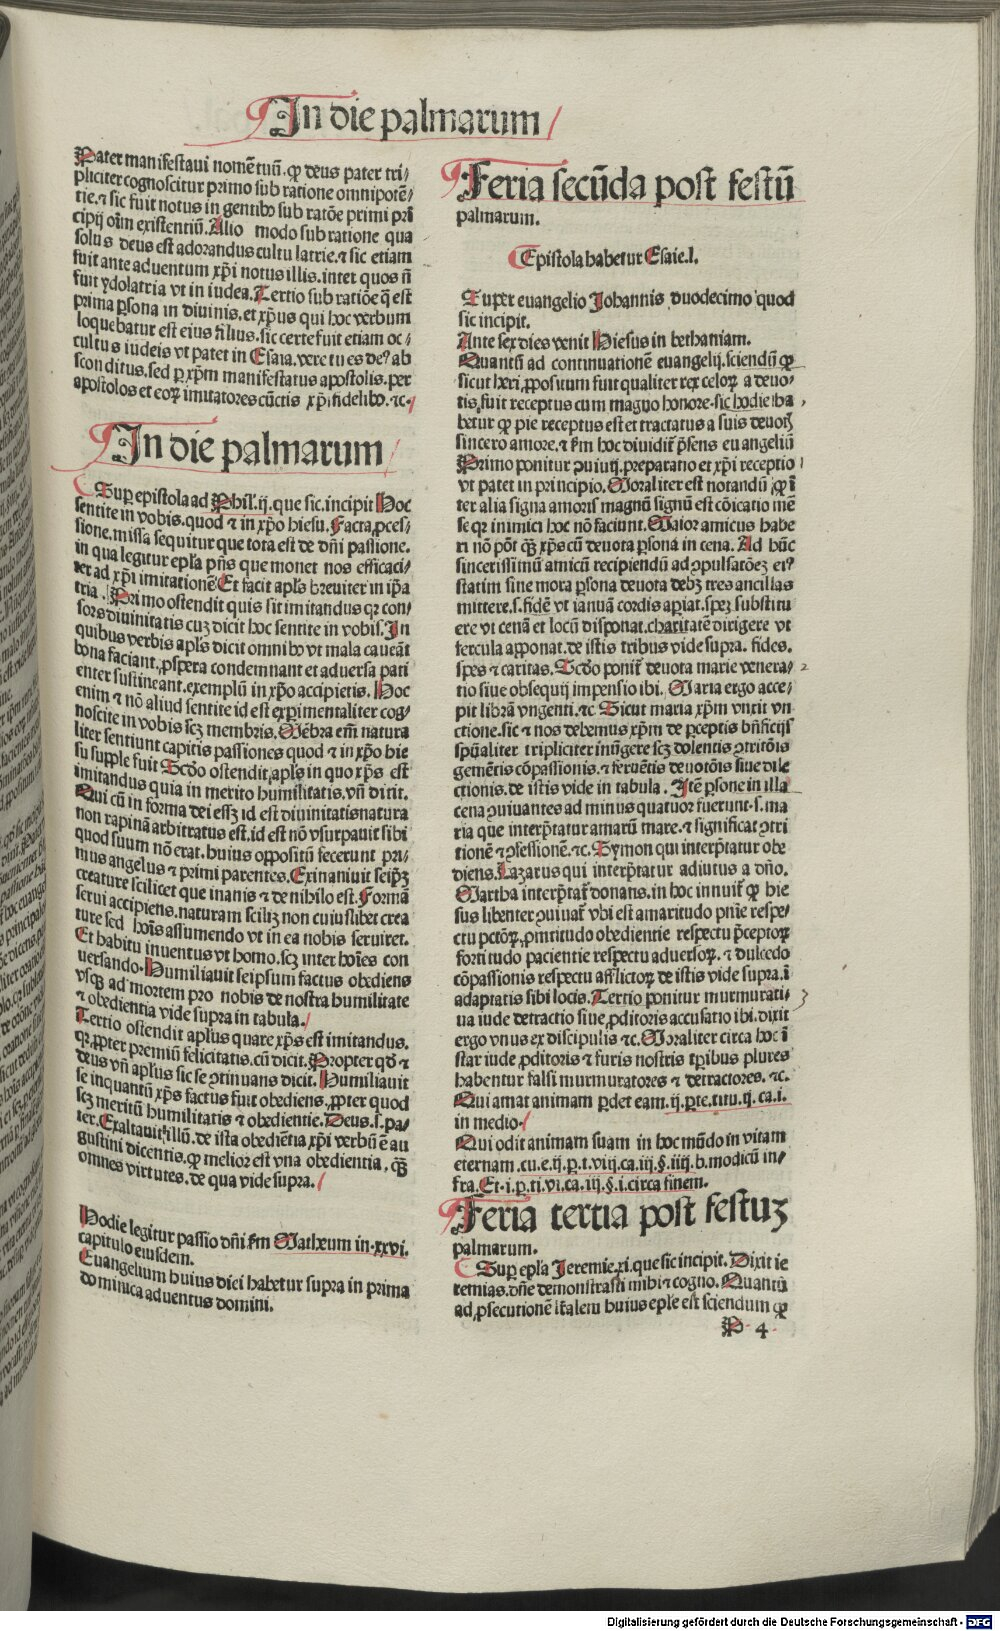 In die palmarum
Pater manifestaui nomē tuū. qꝫ deus pater tri/
pliciter cognoscitur primo sub ratione omnipotē/
tie. ⁊ sic fuit notus in gentibꝰ sub ratōe primi prī
cipij oīm existentiū. Alio modo sub ratione qua
solus deus est adorandus cultu latrie. ⁊ sic etiam
fuit ante aduentum xp̄i notus illis. intet quos nō
fuit ydolatria vt in iudea. Tertio sub ratiōe q̄ est
prima ꝑsona in diuinis. et xp̄us qui hoc verbum
loquebatur est eius filius. sic certe fuit etiam oc/
cultus iudeis vt patet in Esaia. vere tu es deꝰ ab
sconditus. sed ꝑ xp̄m manifestatus apostolis. per
apostolos et eoꝝ imitatores cūctis xp̄i fidelibꝰ. ⁊c.
In die palmarum
Sup epistola ad Phil. ij. que sic. incipit Hoc
sentite in vobis. quod ⁊ in xp̄o hiesu. Facta ꝓces/
sione. missa sequitur que tota est de dn̄i passione.
in qua legitur epl̄a pn̄s que monet nos efficaci/
ter ad xp̄i imitationē Et facit apl̄s breuiter in ip̄a
tria. Primo ostendit quis sit imitandus qꝛ con/
sors diuinitatis cuꝫ dicit hoc sentite in vobis. In
quibus verbis apl̄s dicit omnibꝰ vt mala caueāt
bona faciant. ꝓspera condemnant et aduersa pati
enter sustineant. exemplū in xp̄o accipietis. Hoc
enim ⁊ nō aliud sentite id est experimentaliter cog/
noscite in vobis scꝫ membris. Mēbra em̄ natura
liter sentiunt capitis passiones quod ⁊ in xp̄o hie
su supple fuit Scdo ostendit. apl̄s in quo xp̄s est
imitandus quia in merito humilitatis. vn̄ dicit.
Qui cū in forma dei esſꝫ id est diuinitatis natura
non rapinā arbitratus est. id est nō vsurpauit sibi
quod suum nō erat. huius oppositū fecerunt pri/
mus angelus ⁊ primi parentes. Exinaniuit seip̄ꝫ
creature scilicet que inanis ⁊ de nihilo est. Formā
serui accipiens. naturam sciliꝫ non cuiuslibet crea
ture sed hoīs assumendo vt in ea nobis seruiret.
Et habitu inuentus vt homo. scꝫ inter hoīes con
uersando. Humiliauit seipsum factus obediens
vsqꝫ ad mortem pro nobis de nostra humilitate
⁊ obedientia vide supra in tabula.
Tertio ostendit aplus quare xp̄s est imitandus.
qꝛ ꝓpter premiū felicitatis. cū dicit. Propter qd ⁊
deus vn̄ aplus sic se ꝯtinuans dicit. Humiliauit
se inquantū xp̄s factus fuit obediens. ꝓpter quod
scꝫ meritū humilitatis ⁊ obedientie. Deus. s. pa/
ter. Exaltauit illū. de ista obediētia xp̄i verbū ē au
gustini dicentis. qꝫ melior est vna obedientia. qꝫ̄
omnes virtutes. de qua vide supra.
Hodie legitur passio dn̄i ẜm Matheum in. xxvi.
capitulo eiusdem.
Euangelium huius diei habetur supra in prima
dominica aduentus domini.
Feria secūda post festū
palmarum.
Epistola habetur Esaie. l.
Super euangelio Johannis duodecimo quod
sic incipit.
Ante sex dies venit Hiesus in bethaniam.
Quantū ad continuationē euangelij. sciendū qꝫ
sicut heri. ꝓpositum fuit qualiter rex celoꝝ a deuo/
tis. fuit receptus cum magno honore. sic hodie ha
betur qꝫ pie receptus est et tractatus a suis deuotꝭ
sincero amore. ⁊ ẜm hoc diuidit̄ p̄sens euangeliū
Primo ponitur ꝯuiuij. preparatio et xp̄i receptio
vt patet in principio. Moraliter est notandū ꝙ ī
ter alia signa amoris magnū signū est cōicatio mē
se qꝛ inimici hoc nō faciunt. Maior amicus habe
ri nō pōt qꝫ̄ xp̄s cū deuota ꝑsona in cena. Ad hūc
sincerissimū amicū recipiendū ad ꝯpulsatōeꝫ eiꝰ
statim sine mora ꝑsona deuota debꝫ tres ancillas
mittere. s. fidē vt ianuā cordis aꝑiat. speꝫ substitu
ere vt cenā et locū disponat. charitatē dirigere vt
fercula apponat. de istis tribus vide supra. fides.
spes ⁊ caritas. Scdo ponit̄ deuota marie venera/
tio siue obsequij impensio ibi. Maria ergo acce/
pit librā vngenti. ⁊c Sicut maria xp̄m vnxit vn
ctione. sic ⁊ nos debemus xp̄m de ꝑceptis bn̄ficijs
spūaliter tripliciter inūgere scꝫ dolentis ꝯtritōis
gemētis cōpassionis. ⁊ feruētis deuotōis siue dile
ctionis. de istis vide in tabula. Itē ꝑsone in illa
cena ꝯuiuantes ad minus quatuor fuerunt. s. ma
ria que interp̄tatur amarū mare. ⁊ significat ꝯtri
tionē ⁊ ꝯfessionē. ⁊c. Symon qui interp̄tatur obe
diens. Lazarus qui interp̄tatur adiutus a dn̄o.
Martha interp̄tat̄ donans. in hoc innuit̄ qꝫ hie
sus libenter ꝯuiuat̄ vbi est amaritudo pn̄ie respe/
ctu pctōꝝ. ꝓmtitudo obedientie respectu p̄ceptoꝝ
fortitudo pacientie respectu aduersoꝝ. ⁊ dulcedo
cōpassionis respectu afflictoꝝ de istis vide supra. ī
adaptatis sibi locis. Tertio ponitur murmurati/
ua iude detractio siue. ꝓditoris accusatio ibi. dixit
ergo vnus ex discipulis ⁊c. Moraliter circa hoc ī
star iude ꝓditoris ⁊ furis nostris tꝑibus plures
habentur falsi murmuratores ⁊ detractores. ⁊c.
Qui amat animam ꝑdet eam. ij. ꝑte. titu. ij. ca. i.
in medio.
Qui odit animam suam in hoc mūdo in vitam
eternam. cu. e. ij. p. t. viij. ca. iij. §. iiij. b. modicū in/
fra. Et. i. p. ti. vi. ca. iij. §. i. circa finem.
Feria tertia post festuꝫ
palmarum.
Sup epl̄a Jeremie. xi. que sic incipit. Dixit ie
remias. dn̄e demonstrasti mihi ⁊ cogno. Quantū
ad. ꝓsecutionē lr̄alem huius epl̄e est sciendum qꝫ
P 4
Digitalisierung gefördert durch die Deutsche Forschungsgemeinschaft - DFG